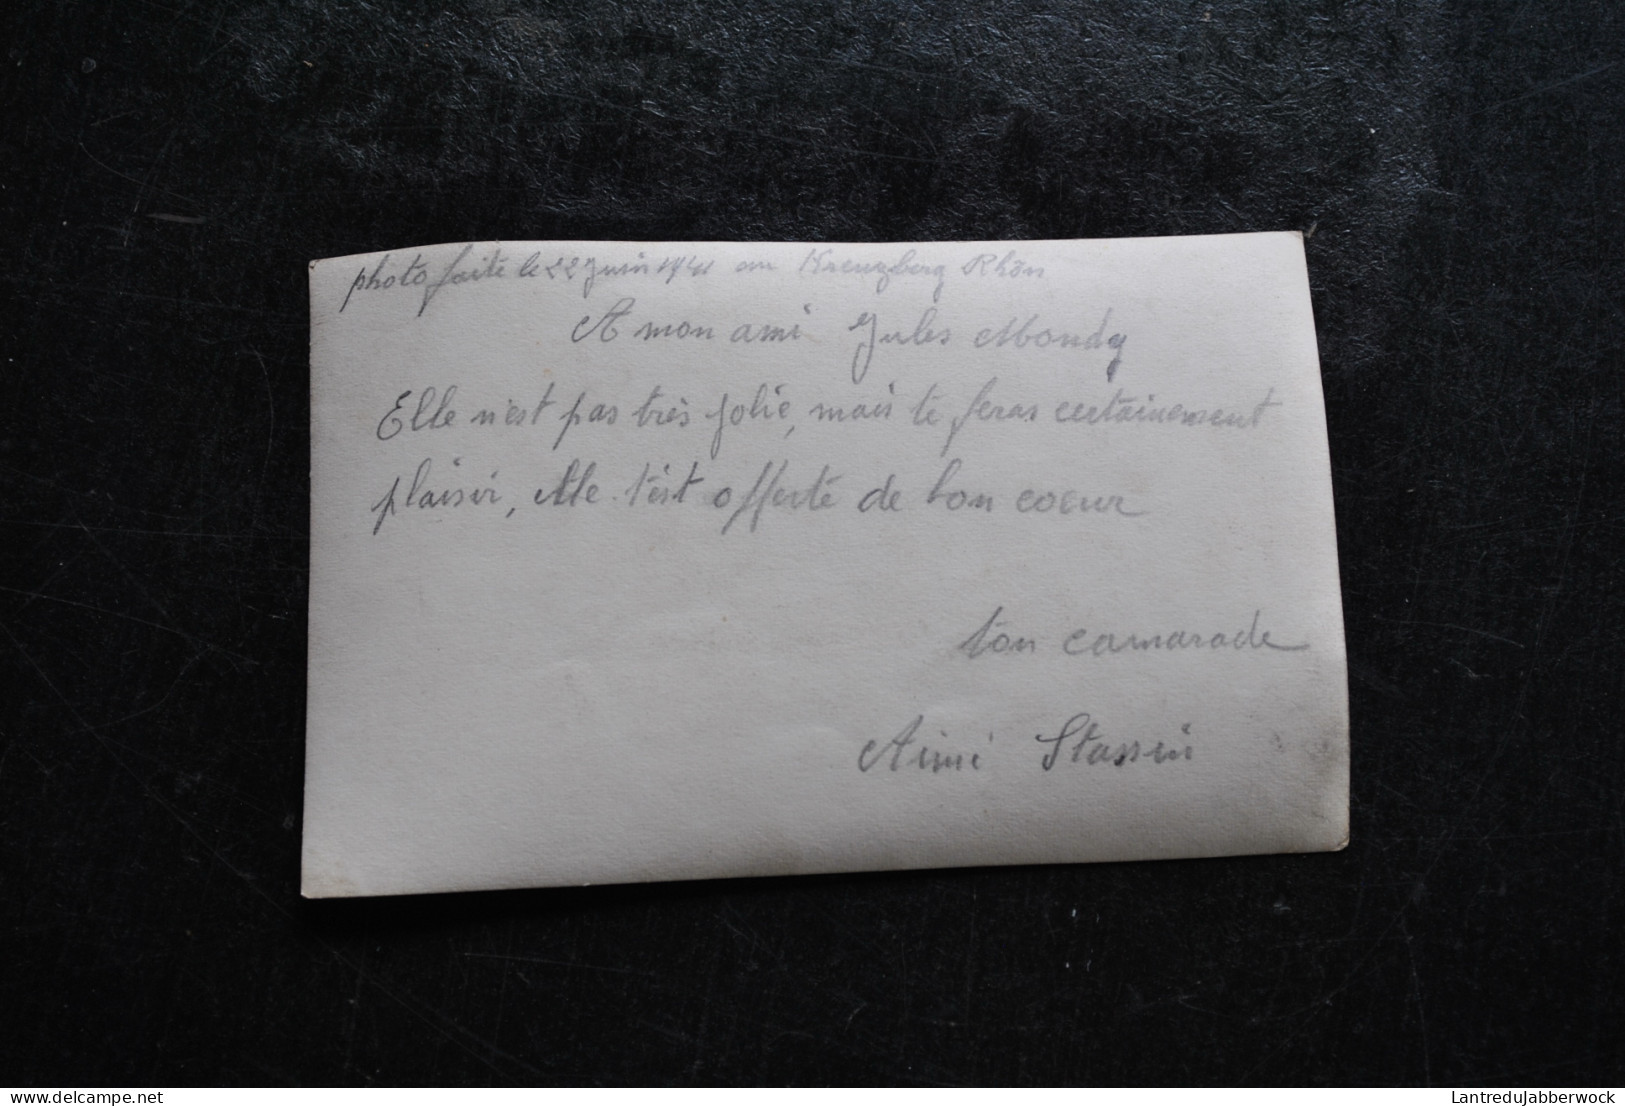 photo faite le 22 Juin 1941 au Kreuzberg Rhön
A mon ami Jules Mondy
Elle n'est pas très jolie, mais te feras certainement
plaisir, Elle t'est offerte de bon coeur
ton camarade
Aimé Stassin
delcampe.net
LantreduJabberwock